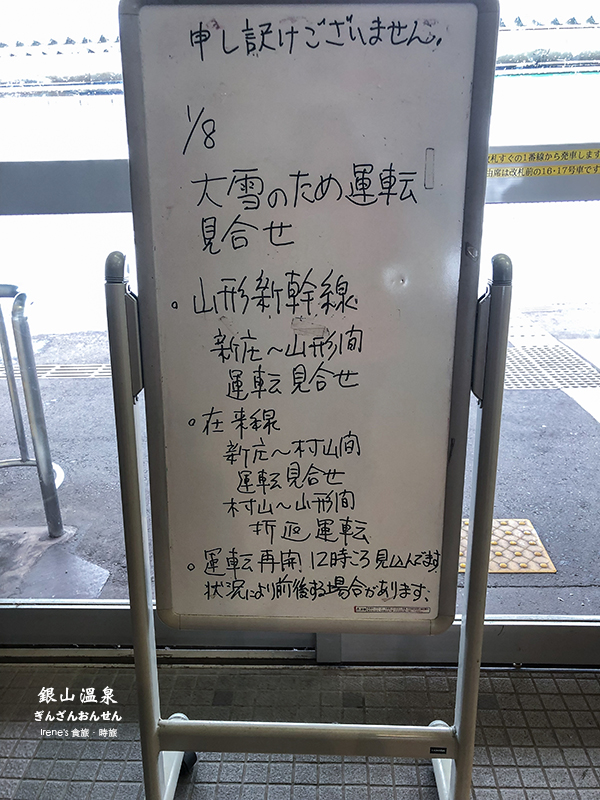 申し訳けございません。
1/8
大雪のため運転
見合せ
。山形新幹線
新庄～山形間
運転見合せ
。在来線
新庄～村山間
運転見合せ
村山～山形間
折返運転
。運転再開！12時ころ見込んでます。
状況により前後する場合があります。
改札すぐの1番線から発車します
由席は改札前の16・17号車です
銀山温泉
ぎんざんおんせん
Irene's 食旅・時旅